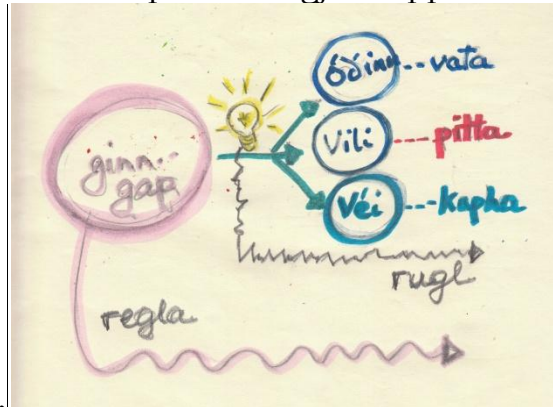 ginn..
gap
óðinn-- vata
Vili --- pitta
Véi --- kapha
rugl
regla